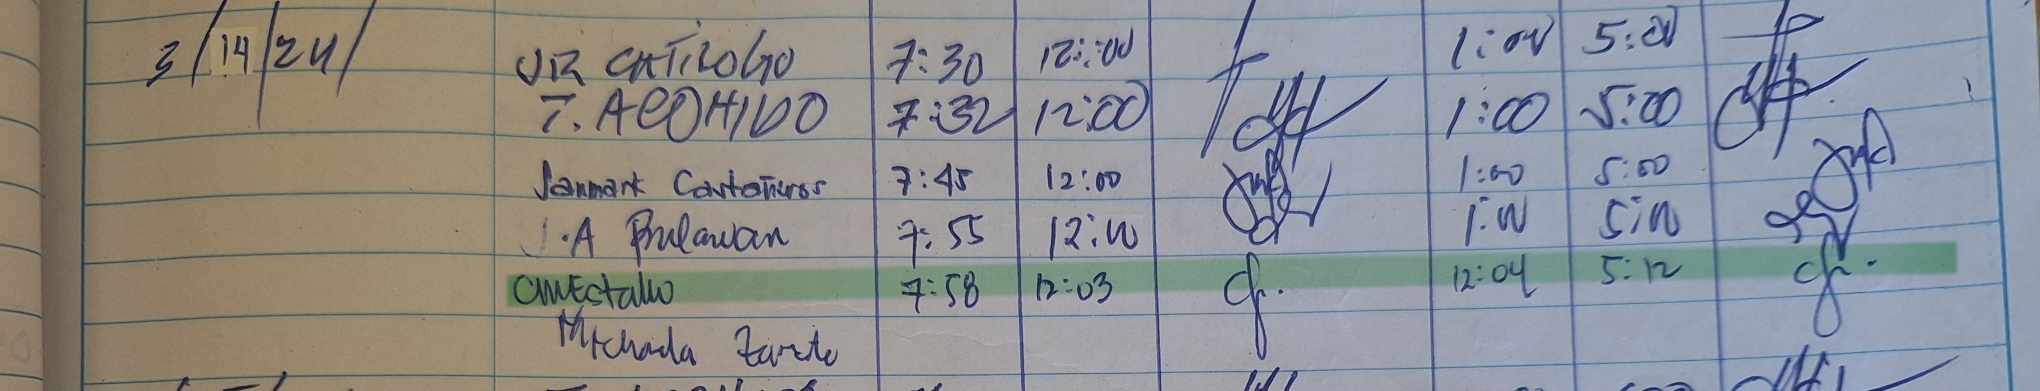 3/14/24/ JR CATIPLOGO 7:30 12:00 1:00 5:00
T. ACOHIDO 7:32 12:00 1:00 5:00
Janmark Castañeros 7:45 12:00 1:00 5:00
J.A Bulawan 7:55 12:00 1:00 5:00
CMEstallo 7:58 12:03 12:04 5:12